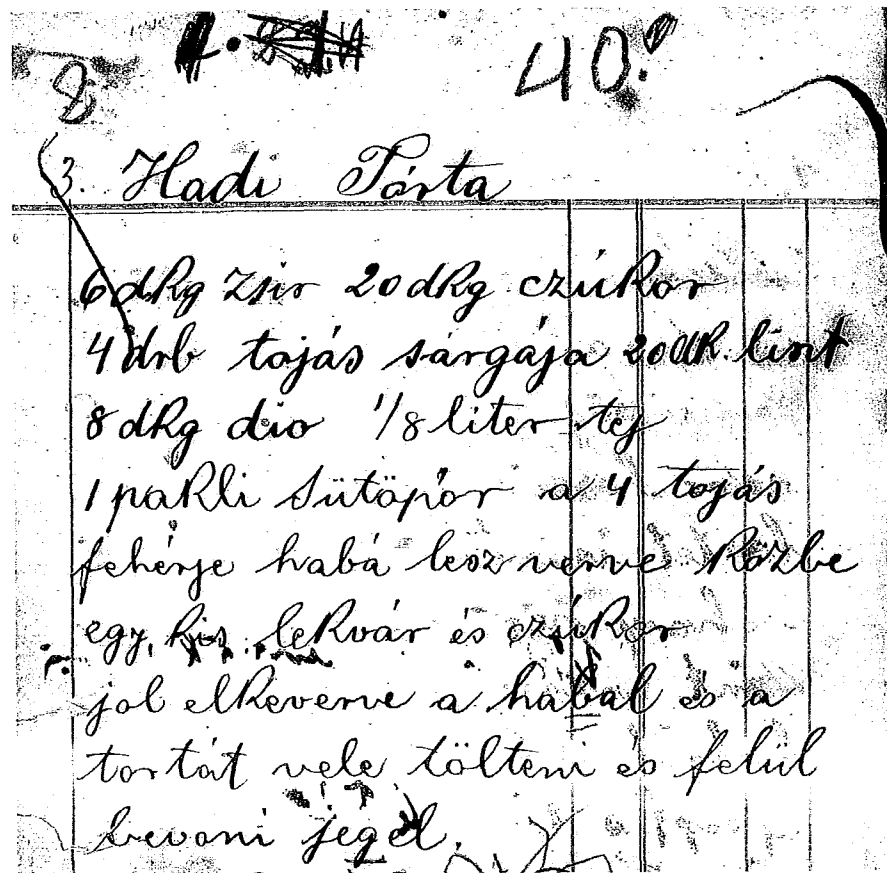 8 40.
3. Hadi Tórta
6 dkg zsir 20 dkg czúkor
4 drb tojás sárgája 20 dk. liszt
8 dkg dio 1/8 liter tej
1 pakli sütöpór a 4 tojás
fehérje habá lesz verve közbe
egy kis lekvár és czúkor
jol elkeverve a habal és a
tortát vele tölteni és felül
bevoni jégel.